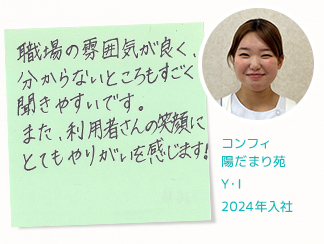 職場の雰囲気が良く、
分からないところもすごく
聞きやすいです。
また、利用者さんの笑顔に
とてもやりがいを感じます!
コンフィ
陽だまり苑
Y・I
2024年入社